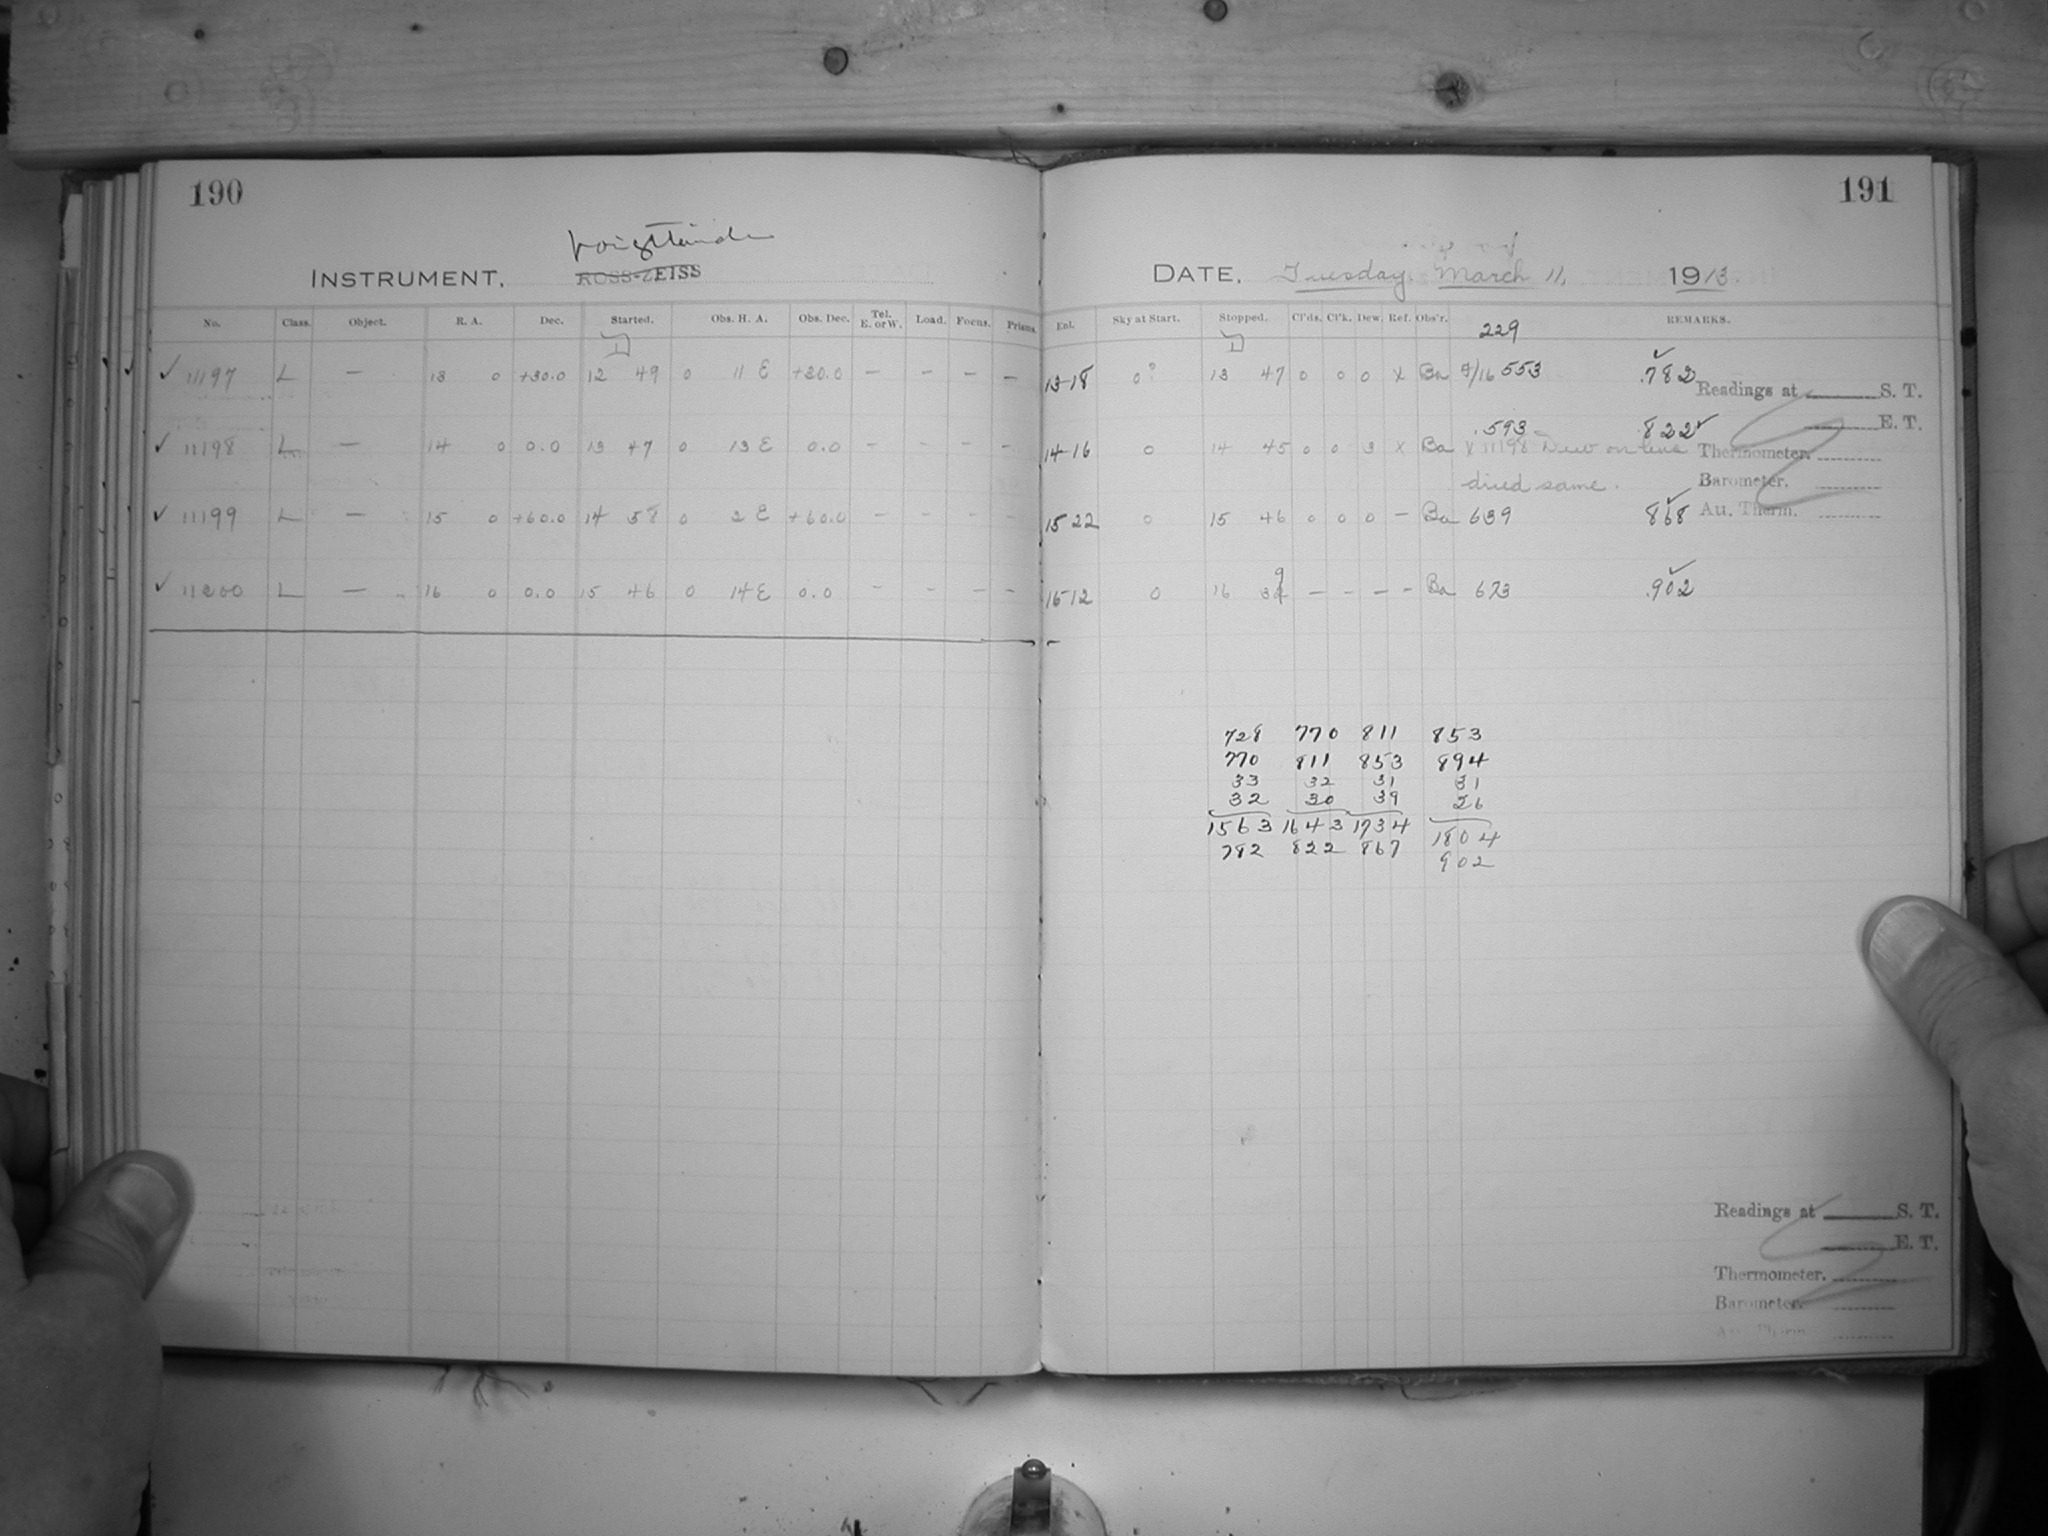 190
191
Voigtländer
INSTRUMENT. ROSS-ZEISS
DATE. Tuesday March 11, 1913.
No. Class. Object. R. A. Dec. Started. Obs. H. A. Obs. Dec. Tel. E. or W. Load. Focus. Prisms. Enl. Sky at Start. Stopped. Cl'ds. Cl'k. Dew. Ref. Obs'r. 229 REMARKS.
✓ 11197 L — 13 0 +30.0 12 49 0 11 E +30.0 — — — — 13-18 0? 13 47 0 0 0 x Ba 553 .782
Readings at S. T.
.593 822
E. T.
✓ 11198 L — 14 0 0.0 13 47 0 13 E 0.0 - - - - 14-16 0 14 45 0 0 3 x Ba x 11198 Dew on lens
Thermometer.
dried same.
Barometer.
✓ 11199 L — 15 0 +60.0 14 58 0 2 E +60.0 - - - - 15 22 0 15 46 0 0 0 - Ba 639 868
Au. Therm.
✓ 11200 L — 16 0 0.0 15 46 0 14 E 0.0 - - - - 16 12 0 16 39 - - - - Ba 673 .902
728 770 811 853
770 811 853 894
33 32 31 31
32 30 39 26
1563 1643 1734 1804
782 822 867 902
Readings at S. T.
E. T.
Thermometer.
Barometer.
Au. Therm.